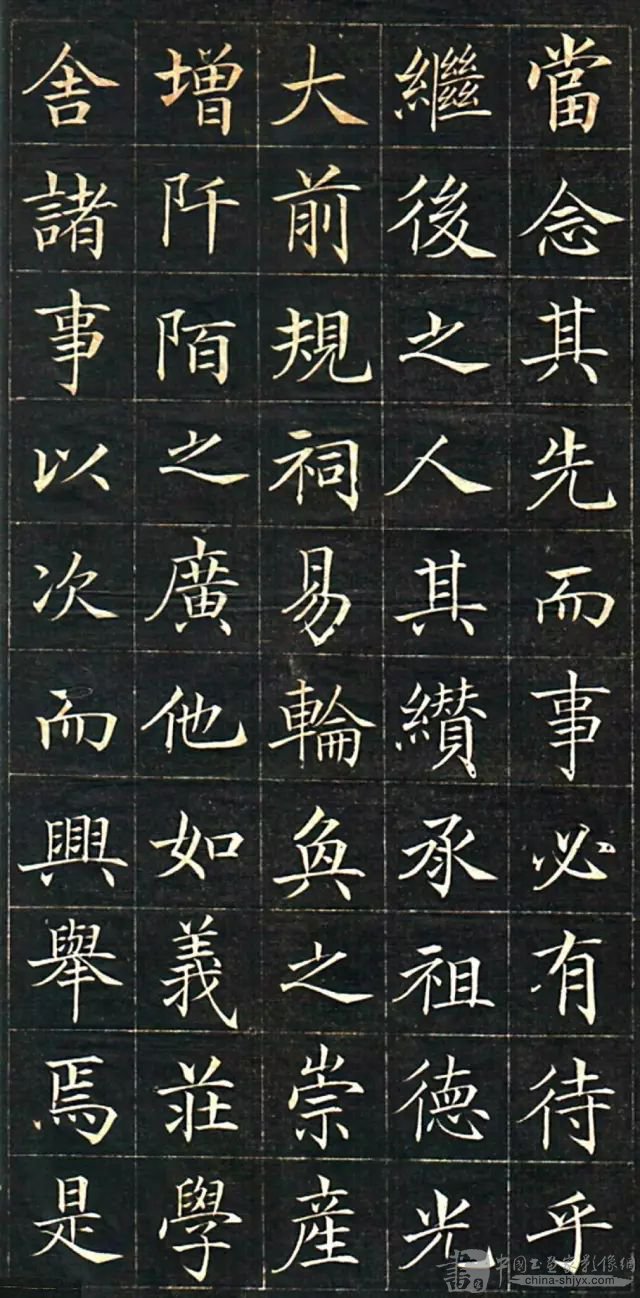 當念其先而事必有待乎
繼後之人其纘承祖德光
大前規祠易輪奐之崇產
增阡陌之廣他如義莊學
舍諸事以次而興舉焉是
書 中国书画家影像網
china-shjyx.com